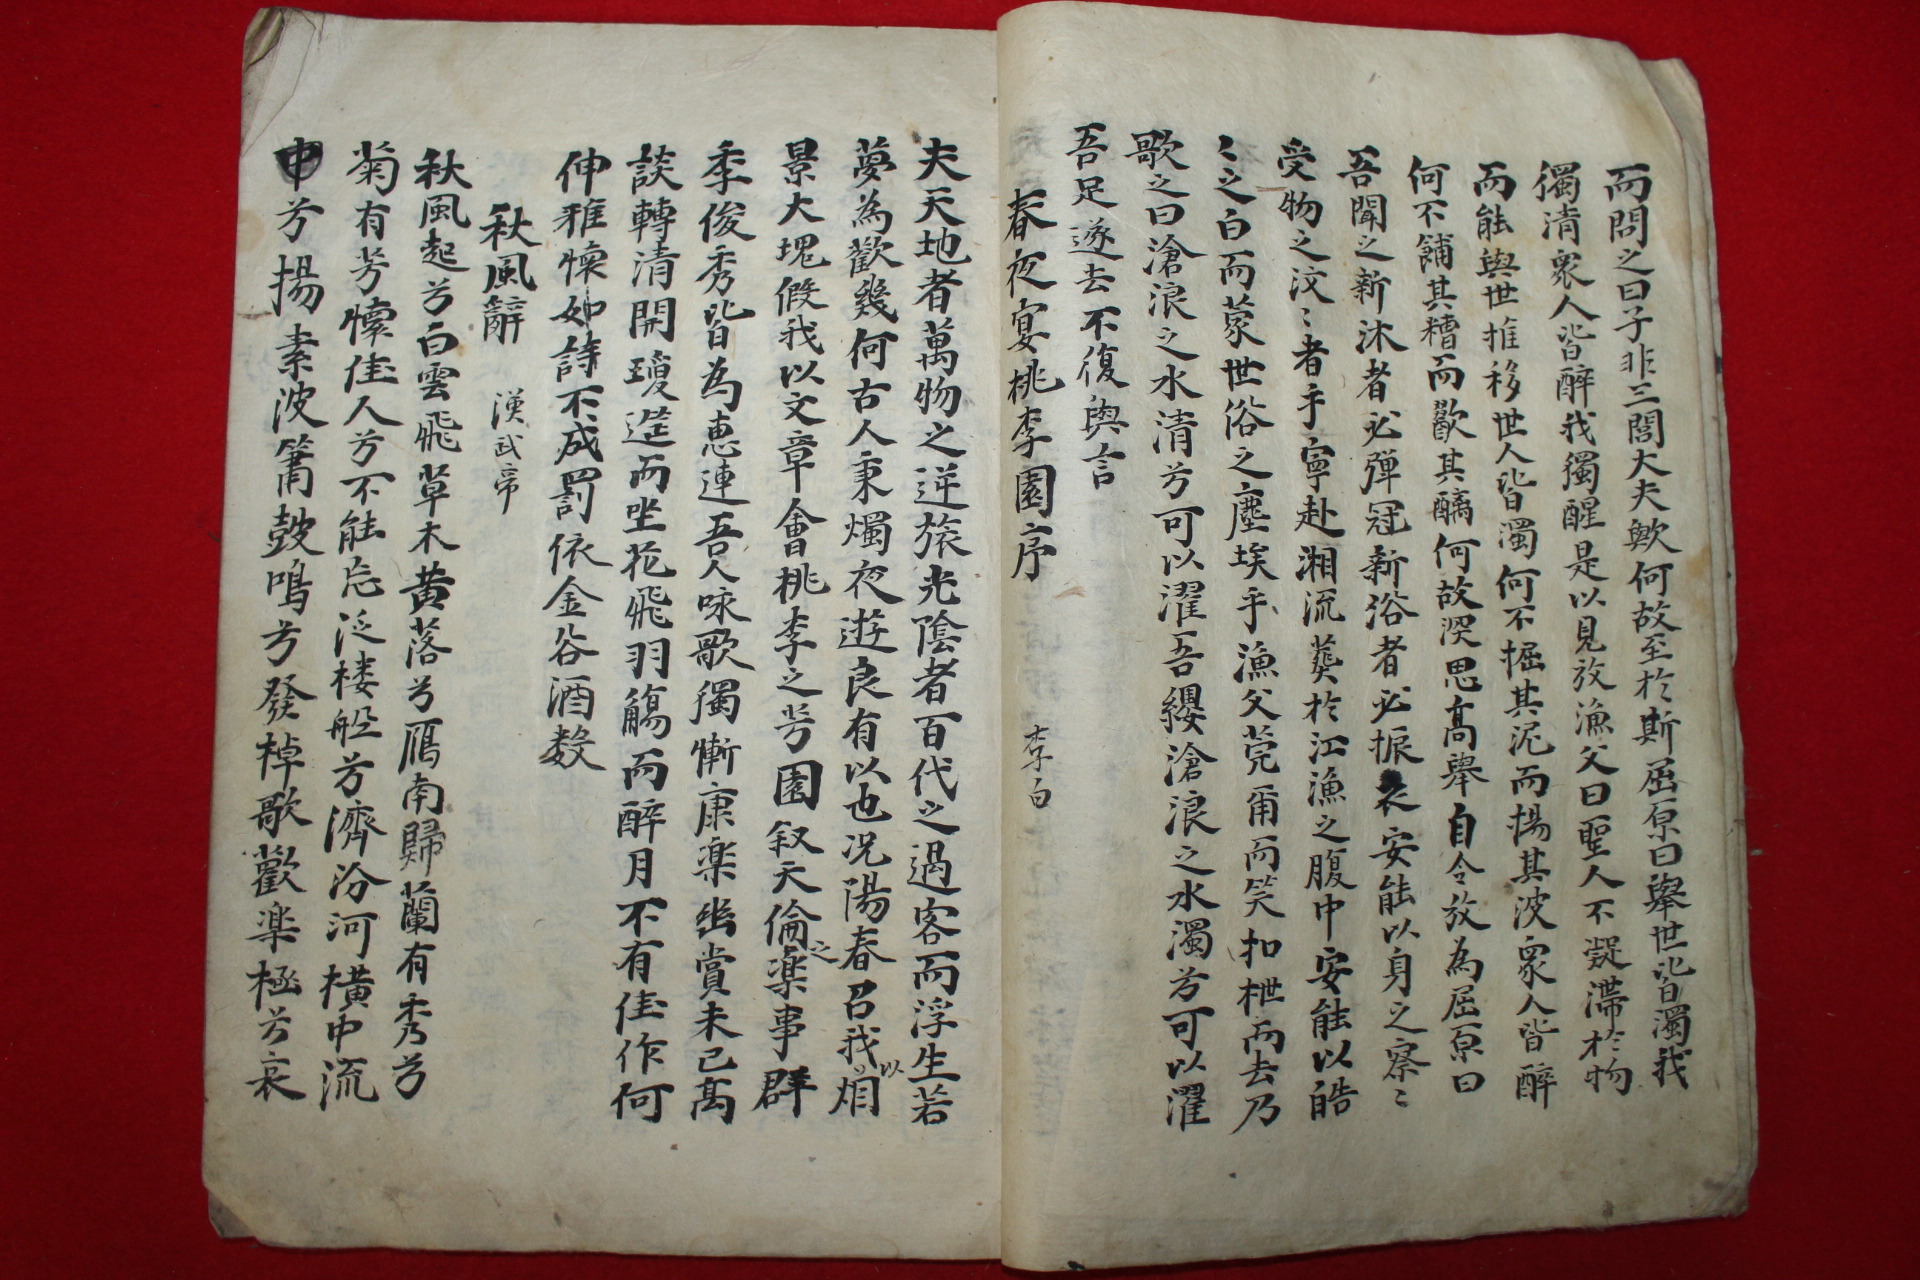 而問之曰子非三閭大夫歟何故至於斯屈原曰擧世皆濁我
獨淸衆人皆醉我獨醒是以見放漁父曰聖人不凝滯於物
而能與世推移世人皆濁何不掘其泥而揚其波衆人皆醉
何不餔其糟而歠其醨何故深思高擧自令放為屈原曰
吾聞之新沐者必彈冠新浴者必振衣安能以身之察〻
受物之汶〻者乎寧赴湘流葬於江漁之腹中安能以皓
〻之白而蒙世俗之塵埃乎漁父莞爾而笑扣枻而去乃
歌之曰滄浪之水清兮可以濯吾纓滄浪之水濁兮可以濯
吾足遂去不復與言
春夜宴桃李園序 李白
夫天地者萬物之逆旅光陰者百代之過客而浮生若
夢為歡幾何古人秉燭夜遊良有以也况陽春召我以烟
景大塊假我以文章會桃李之芳園叙天倫之楽事群
季俊秀皆為惠連吾人咏歌獨慚康楽幽賞未已高
談轉清開瓊筵而坐花飛羽觴而醉月不有佳作何
伸雅懷如詩不成罰依金谷酒数
秋風辭 漢武帝
秋風起兮白雲飛草木黄落兮鴈南歸蘭有秀兮
菊有芳懷佳人兮不能忘泛楼船兮濟汾河橫中流
兮揚素波簫鼓鳴兮發棹歌歡楽極兮哀